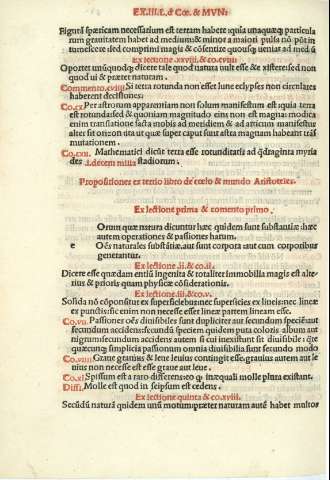 EX.IIII.L. & Cœ. & MVN:
Figurā spæricam necessarium est terram habere quia unaquæq; particula
rum grauitatem habet ad medium & minor a maiori pulsa nō pōt in
tumescere sed comprimi magis & cōsentire quousq; ueniat ad mediū
Ex lectione .xxviii. & co.cviii.
Oportet unūquodq; dicere tale quod natura uult esse & existere sed non
quod ui & præter naturam.
Commento.cviiii Si terra rotunda non esset lunæ eclypses non circulares
haberent decisiones.
Co.cx Per astrorum apparentiam non solum manifestum est quia terra
est rotunda sed & quoniam magnitudo eius non est magna: modica
enim translatione facta nobis ad meridiem & ad arcticum manifestus
alter fit orizon ita ut quæ super caput sunt astra magnam habeant trās
mutationem.
Co.cxii. Mathematici dicūt terræ esse rotunditatis ad q̄draginta myria
des .i. decem milia stadiorum.
Propositiones ex tertio libro de cœlo & mundo Aristotelis.
Ex lectione prima & comento primo.
Orum quæ natura dicuntur hæc quidem sunt substantiæ hæc
autem operationes & passiones harum.
e Oēs naturales substātiæ. aut sunt corpora aut cum corporibus
generantur.
Ex lectione .ii. & co.ii.
Dicere esse quædam entia ingenita & totaliter immobilia magis est alte
rius & prioris quam physicæ cōsiderationis.
Ex lectione .iii. & co.v.
Solida nō cōponūtur ex superficiebus: nec superficies ex lineis nec lineæ
ex punctis: sic enim non necesse esset lineæ partem lineam esse.
Co.vii Passiones oēs diuisibiles sunt dupliciter aut secundum speciē aut
secundum accidens: secundū speciem quidem puta coloris album aut
nigrum secundum accidens autem si cui inexistunt sit diuisibile: q̄re
quæcunq; simplicis passionum omnia diuisibilia sunt secundo modo
Co.viiii Graue grauius & leue leuius contingit esse. grauius autem aut le
uius non necesse est esse graue aut leue.
Co.xi Spissum est a raro differens: eo q̄ in æquali molle plura existant.
Diffi. Molle est quod in seipsum est cedens.
Ex lectione quinta & co.xviii.
Secūdū naturā quidem unū motum: præter naturam autē habet multos